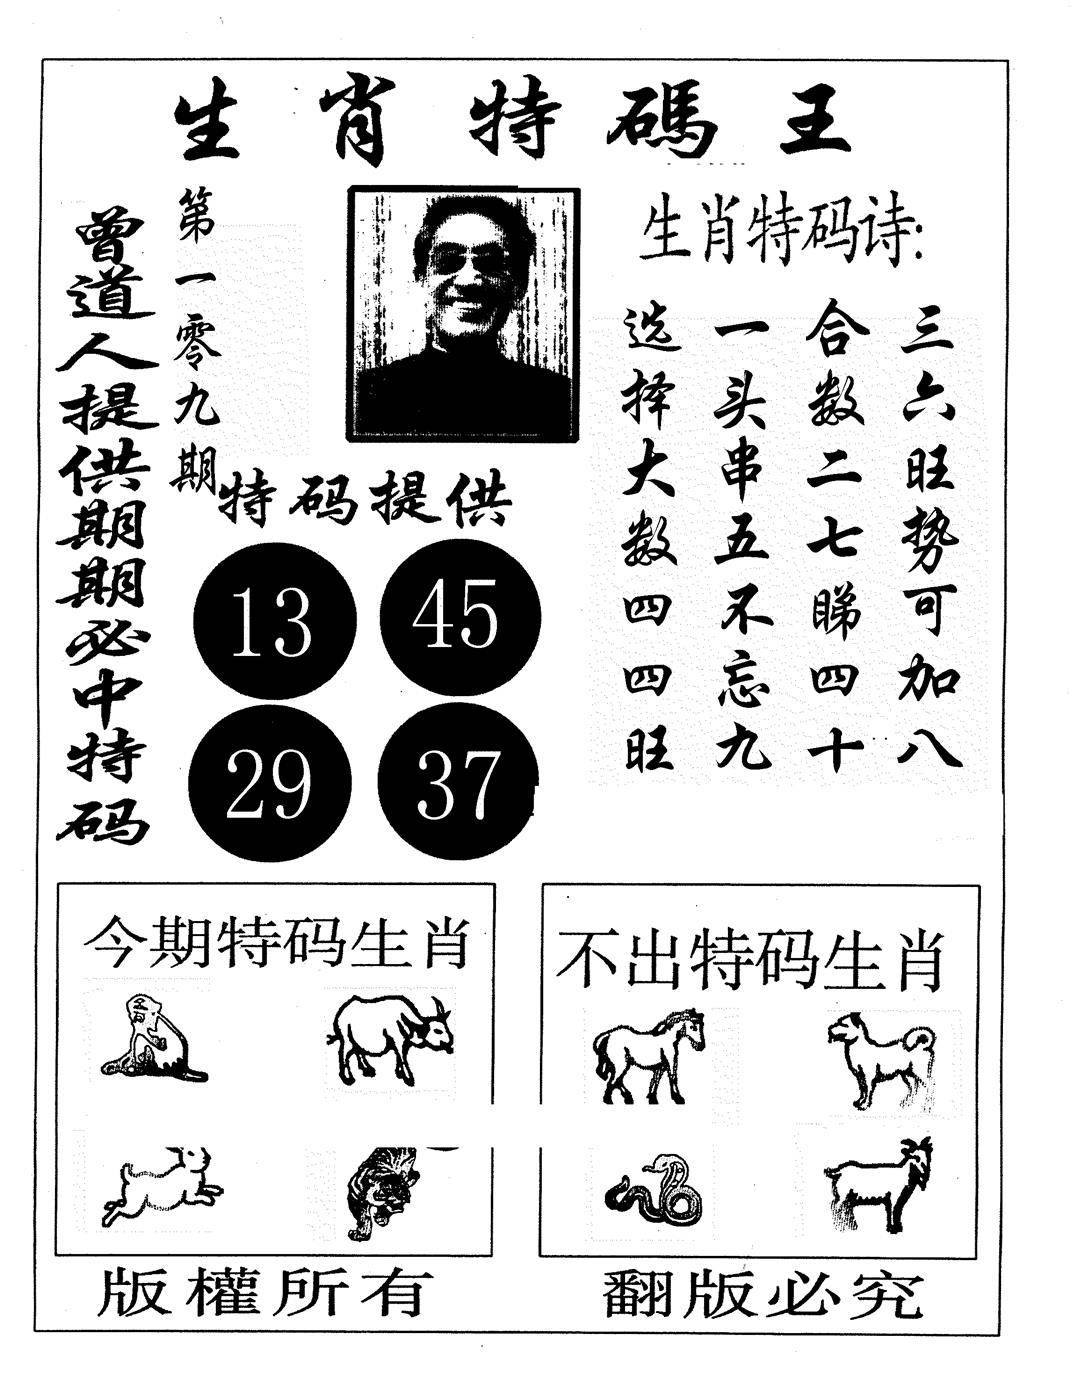 生肖特碼王
曾道人提供期期必中特码
第一零九期
特码提供
13
45
29
37
生肖特码诗:
三六旺势可加八
合数二七睇四十
一头串五不忘九
选择大数四四旺
今期特码生肖
不出特码生肖
版權所有
翻版必究